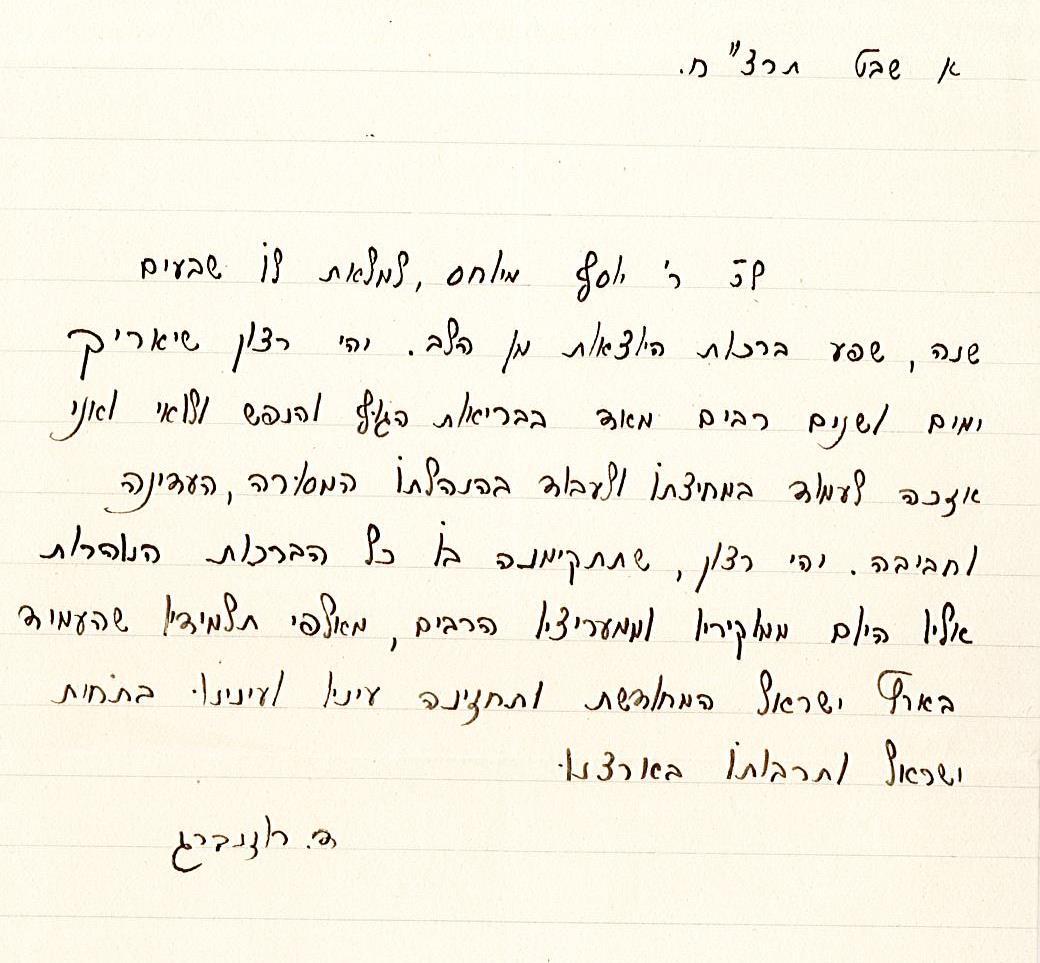 א שבט תרצ"ח.
לכ' ר' יוסף מיוחס, למלאת לו שבעים
שנה, שפע ברכות היוצאות מן הלב. יהי רצון שיאריך
ימים ושנים רבים מאד בבריאות הגוף והנפש ולואי ואני
אזכה לעמוד במחיצתו ולעבוד בהנהלתו המסורה, העדינה
וחביבה. יהי רצון, שתתקימנה בו כל הברכות הנוהרות
אליו היום ממוקיריו וממעריציו הרבים, מאלפי תלמידיו שהעמיד
בארץ ישראל המחודשת ותחזינה עיניו ועינינו בתחית
ישראל ותרבותו בארצנו.
ד. רוזנברג